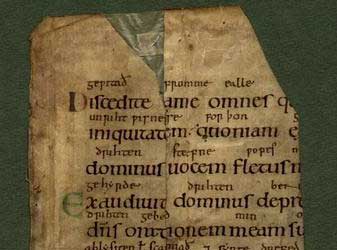 geƿitað fromme ealle
Discedite ame omnes q
unriht forþon
iniquitatem · quoniam e
drihten stefne ƿopes
dominus uocem fletus m
gehyrde drihten be
Exaudiuit dominus depr
drihten gebed min o
dn̄s orationem meam su